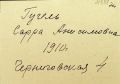 Гугель
Сарра Анисимовна
1910г.
Черниговская 4